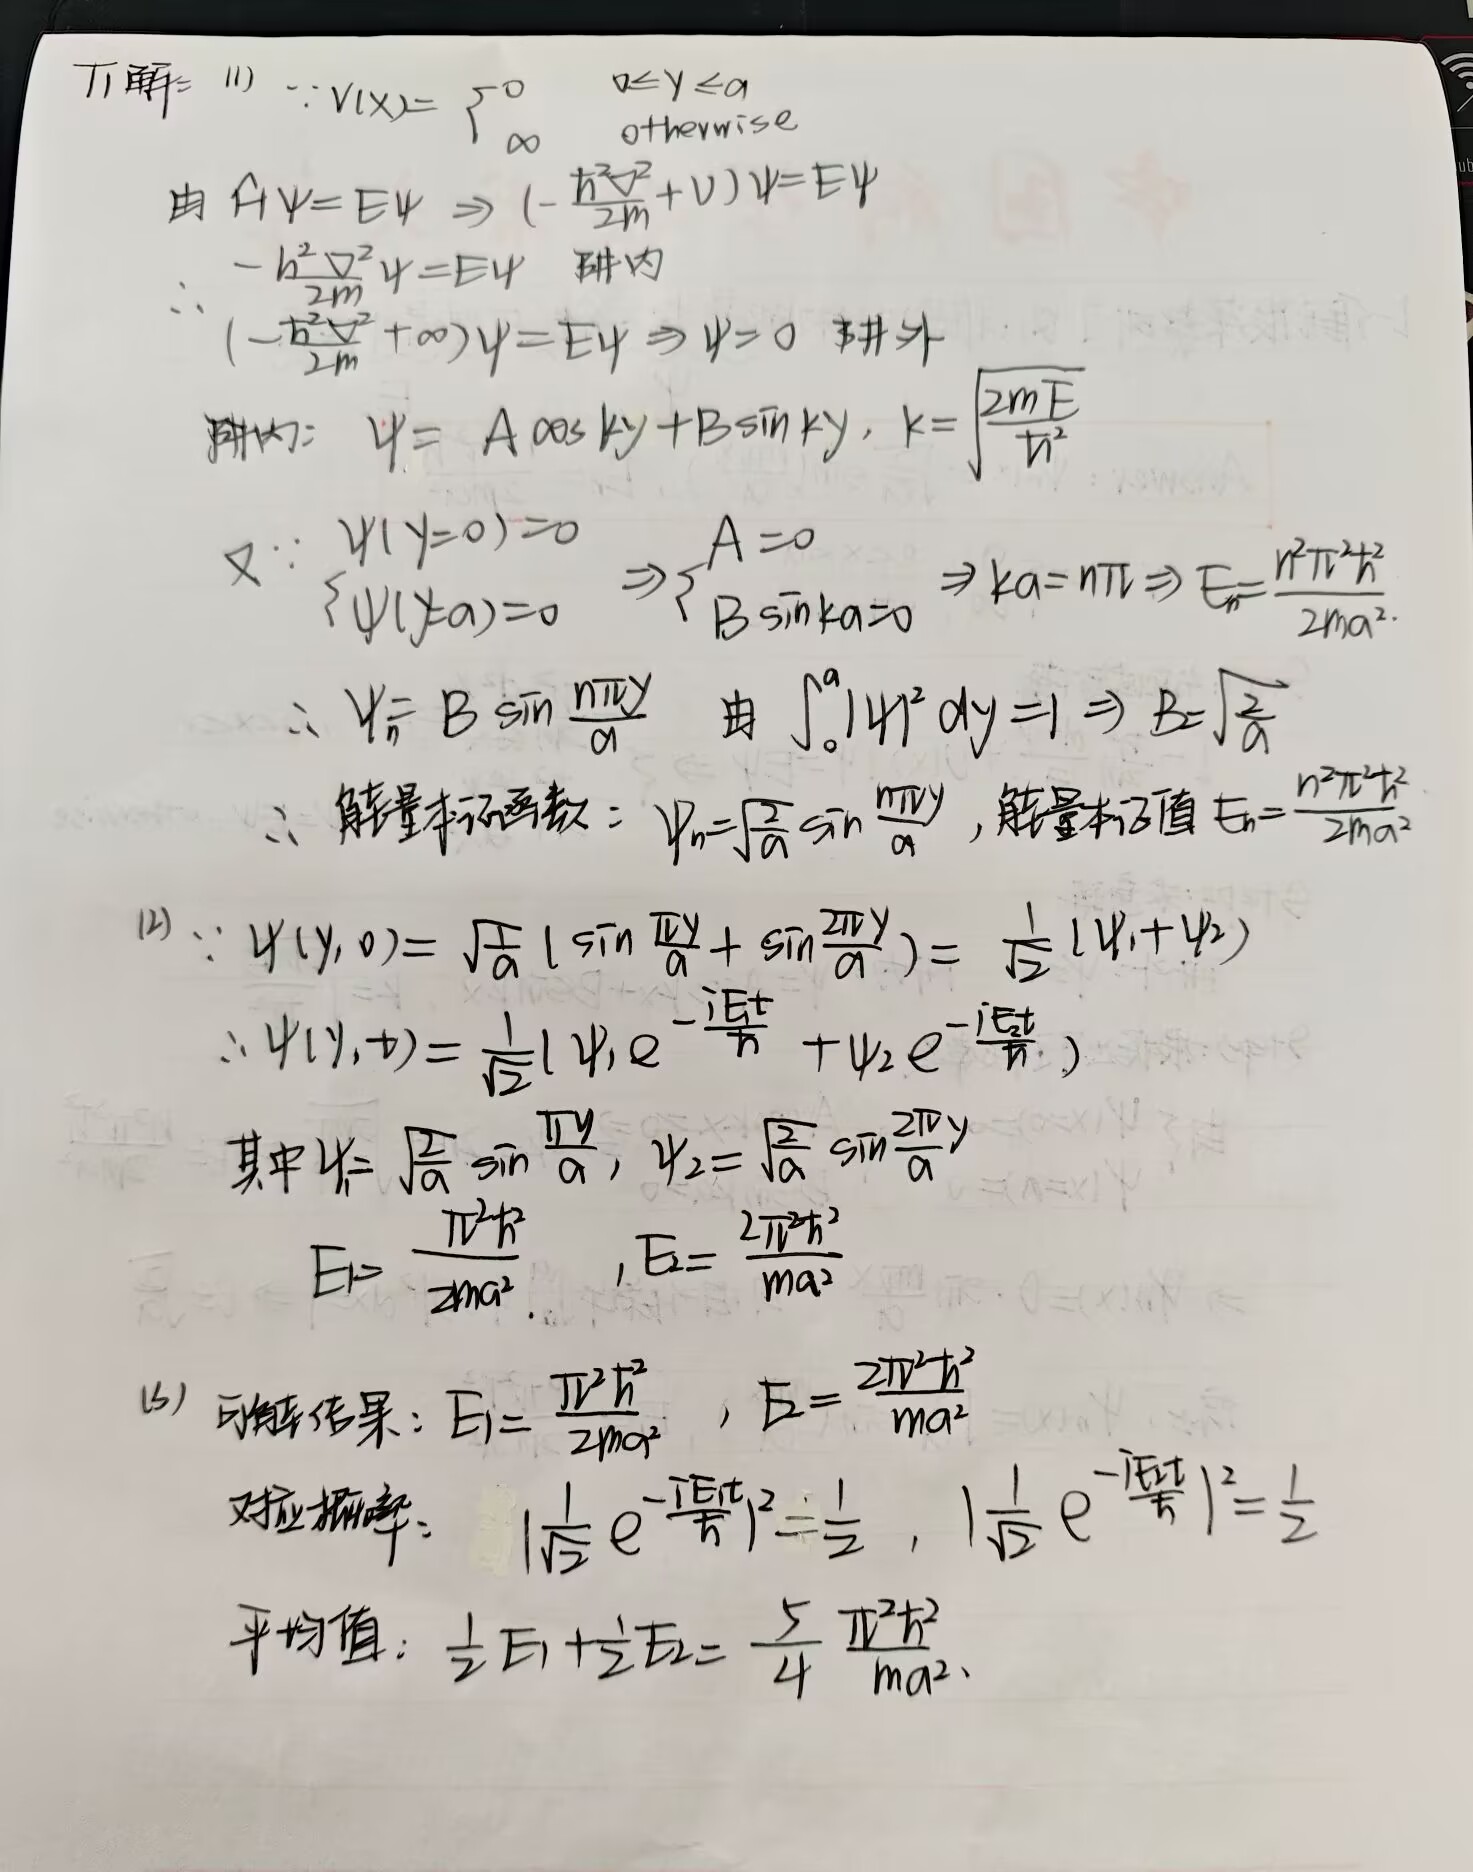 T1解: (1) ∵ V(x) = { 0 0≤y≤a
∞ otherwise
由 Ĥψ=Eψ ⇒ (-ħ²∇²/2m + V)ψ=Eψ
∴ -ħ²∇²/2m ψ=Eψ 阱内
(-ħ²∇²/2m +∞)ψ=Eψ ⇒ ψ=0 阱外
阱内: ψ= A cos ky + B sin ky, k=√(2mE/ħ²)
又∵ { ψ(y=0)=0 ψ(y=a)=0 ⇒ { A=0 B sin ka=0 ⇒ ka=nπ ⇒ En= n²π²ħ²/2ma².
∴ ψn= B sin nπy/a 由 ∫₀ᵃ|ψ|² dy=1 ⇒ B=√(2/a)
∴ 能量本征函数: ψn=√(2/a) sin nπy/a, 能量本征值 En= n²π²ħ²/2ma²
(2) ∵ ψ(y,0)= √(1/a) (sin πy/a + sin 2πy/a) = 1/√2 (ψ₁+ψ₂)
∴ ψ(y,t)= 1/√2 (ψ₁ e^(-iE₁t/ħ) + ψ₂ e^(-iE₂t/ħ))
其中 ψ₁= √(2/a) sin πy/a, ψ₂=√(2/a) sin 2π/a y
E₁= π²ħ²/2ma². , E₂= 2π²ħ²/ma²
(3) 可能结果: E₁= π²ħ²/2ma² , E₂= 2π²ħ²/ma²
对应概率: |1/√2 e^(-iE₁t/ħ)|²=1/2 , |1/√2 e^(-iE₂t/ħ)|²=1/2
平均值: 1/2 E₁+1/2 E₂= 5/4 π²ħ²/ma².